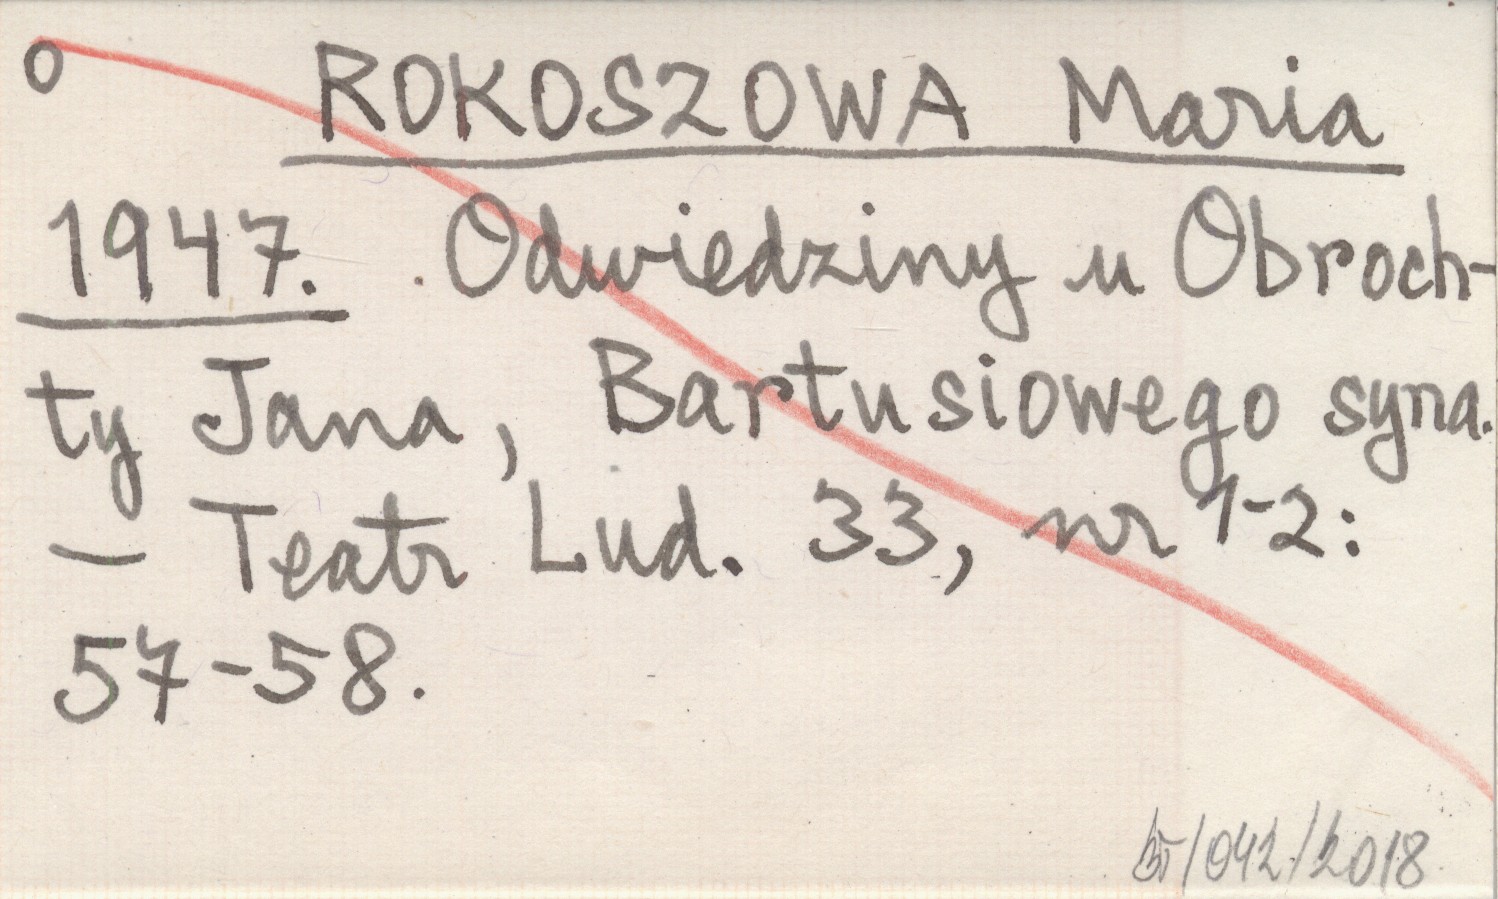 o ROKOSZOWA Maria
1947. Odwiedziny u Obroch-
ty Jana, Bartusiowego syna.
— Teatr Lud. 33, nr 1-2:
57-58.
/042/2018